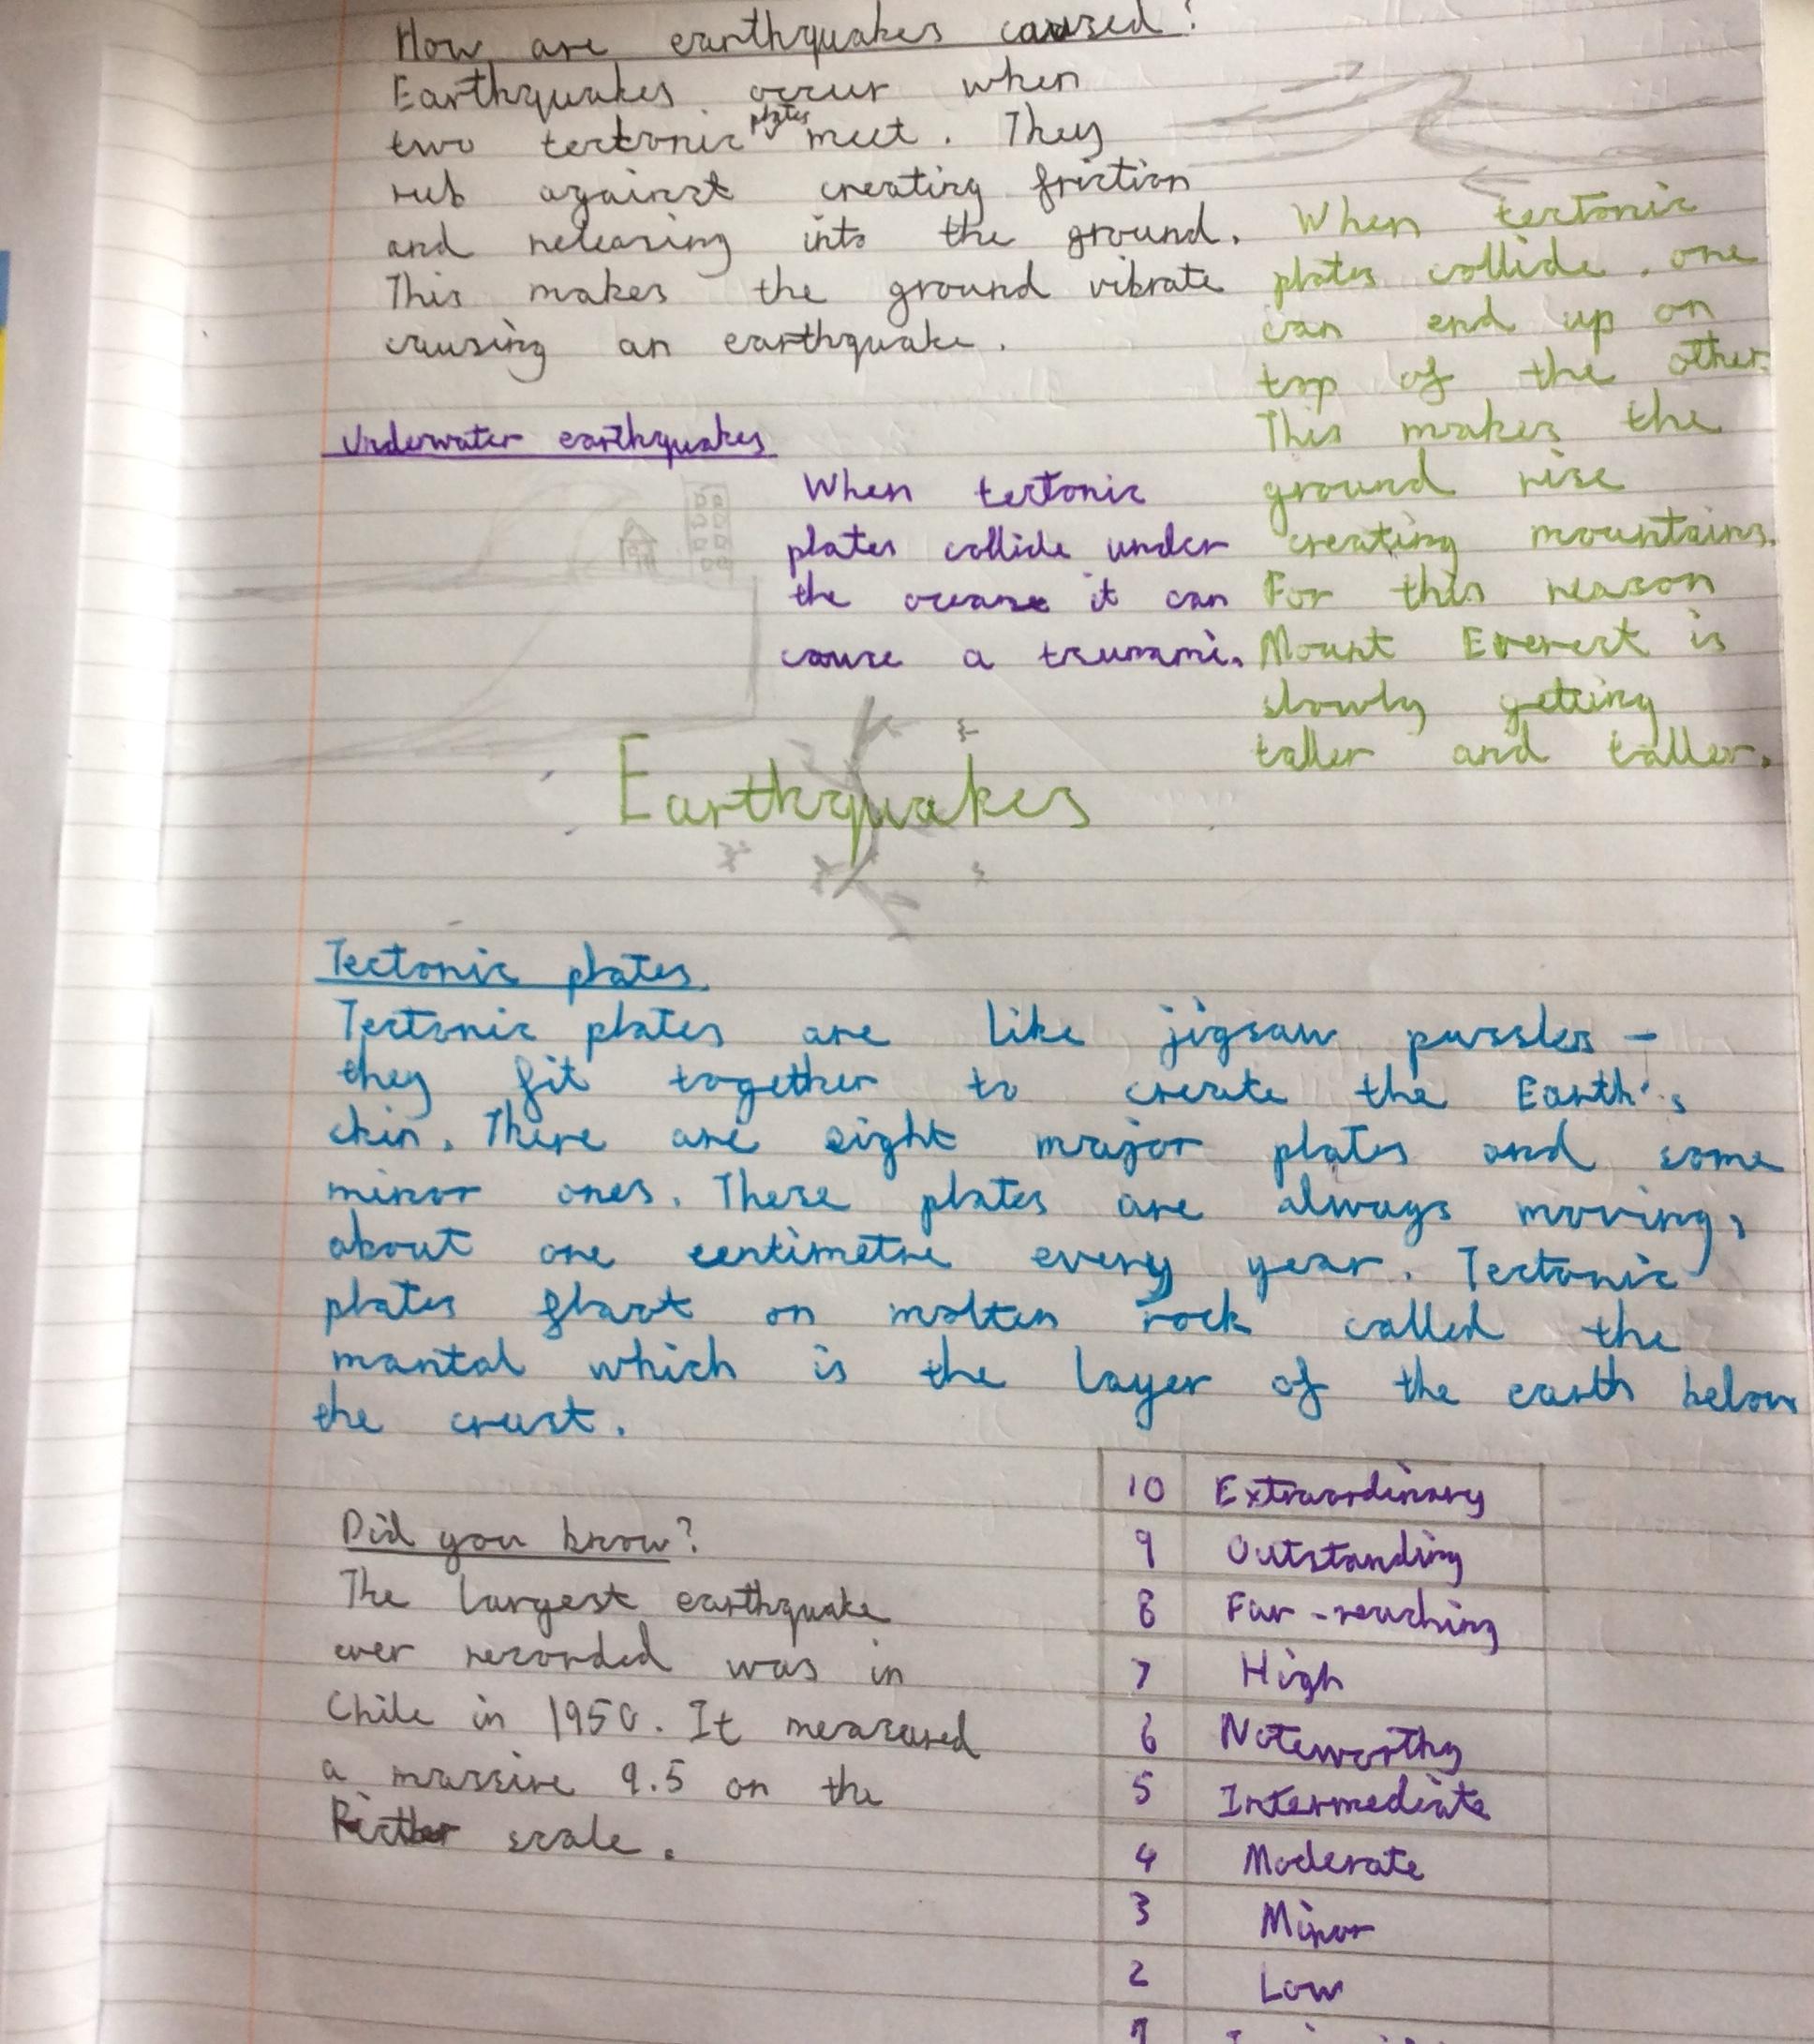 How are earthquakes caused?
Earthquakes occur when
two tectonic plates meet. They
rub against creating friction
and releasing into the ground.
This makes the ground vibrate
causing an earthquake.
When tectonic
plates collide, one
can end up on
top of the other.
This makes the
ground rise
creating mountains.
For this reason
Mount Everest is
slowly getting
taller and taller.
Underwater earthquakes
When tectonic
plates collide under
the oceans it can
cause a tsunami.
Earthquakes
Tectonic plates.
Tectonic plates are like jigsaw pussles -
they fit together to create the Earth's
skin. There are eight major plates and some
minor ones. These plates are always moving,
about one centimetre every year. Tectonic
plates float on molten rock called the
mantal which is the layer of the earth below
the crust.
Did you know?
The largest earthquake
ever recorded was in
Chile in 1950. It measured
a massive 9.5 on the
Ricther scale.
10 Extraordinary
9 Outstanding
8 Far-reaching
7 High
6 Noteworthy
5 Intermediate
4 Moderate
3 Minor
2 Low
1